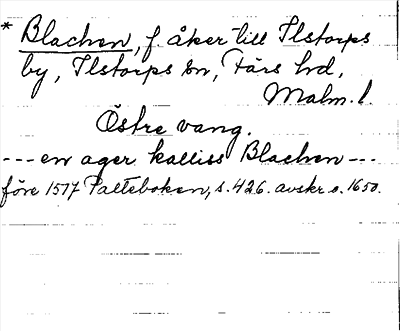 * Blachen, f. åker till Ilstorps
by, Ilstorps sn, Färs hd,
Malm. l.
Östre vang.
--- en ager kalliss Blachen ---
före 1517 Palteboken, s. 426. avskr. o. 1650.